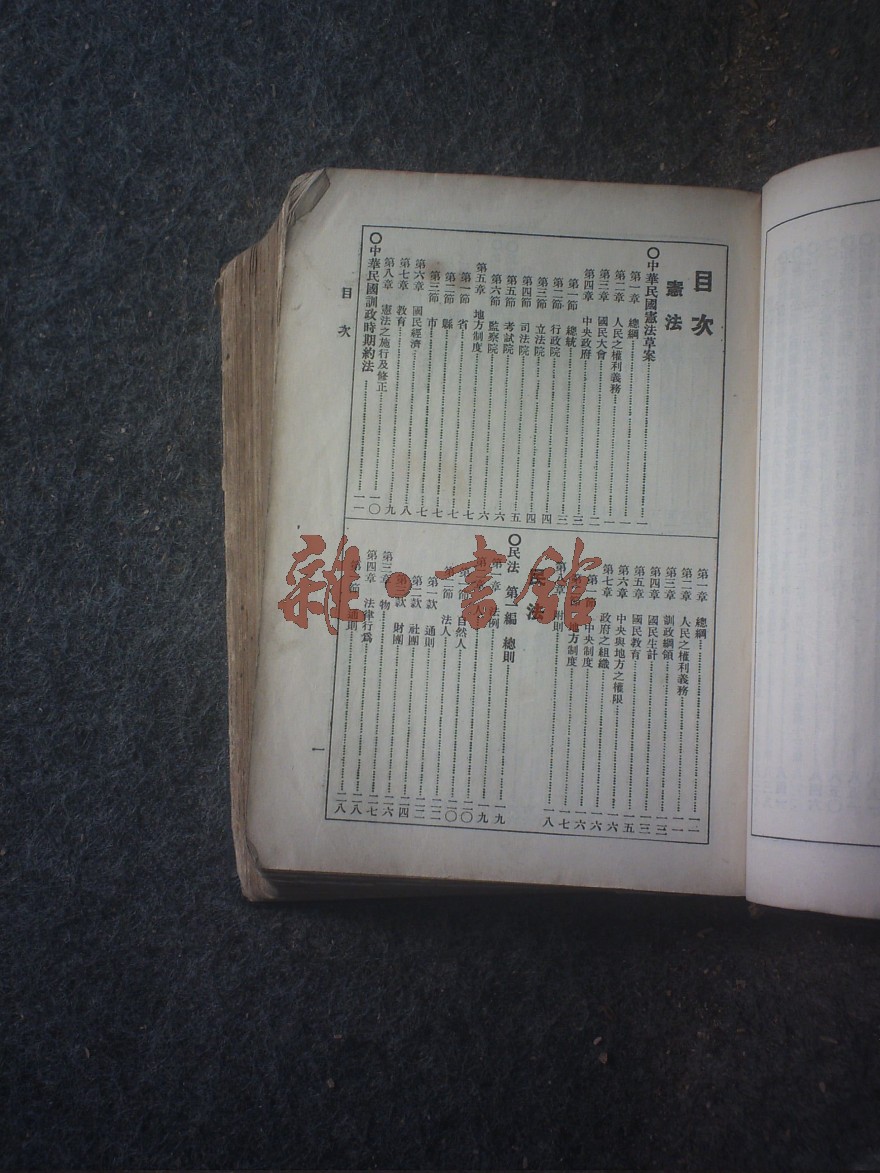 目次
憲法
〇中華民國憲法草案……一
第一章 總綱……一
第二章 人民之權利義務……一
第三章 國民大會……二
第四章 中央政府……三
第一節 總統……三
第二節 行政院……四
第三節 立法院……四
第四節 司法院……五
第五節 考試院……六
第六節 監察院……六
第五章 地方制度……七
第一節 省……七
第二節 縣……七
第三節 市……七
第六章 國民經濟……八
第七章 教育……九
第八章 憲法之施行及修正……一〇
〇中華民國訓政時期約法……一一
第一章 總綱……一二
第二章 人民之權利義務……一一
第三章 訓政綱領……一三
第四章 國民生計……一三
第五章 國民教育……一五
第六章 中央與地方之權限……一六
第七章 政府之組織……一六
第一節 中央制度……一六
第二節 地方制度……一七
第八章 附則……一八
民法
〇民法 第一編 總則……一九
第一章 法例……一九
第二章 人
第一節 自然人……二〇
第二節 法人
第一款 通則……二二
第二款 社團
第三款 財團……二四
第三章 物……二六
第四章 法律行爲……二七
第一節 通則……二八
目次
一
雜·書館